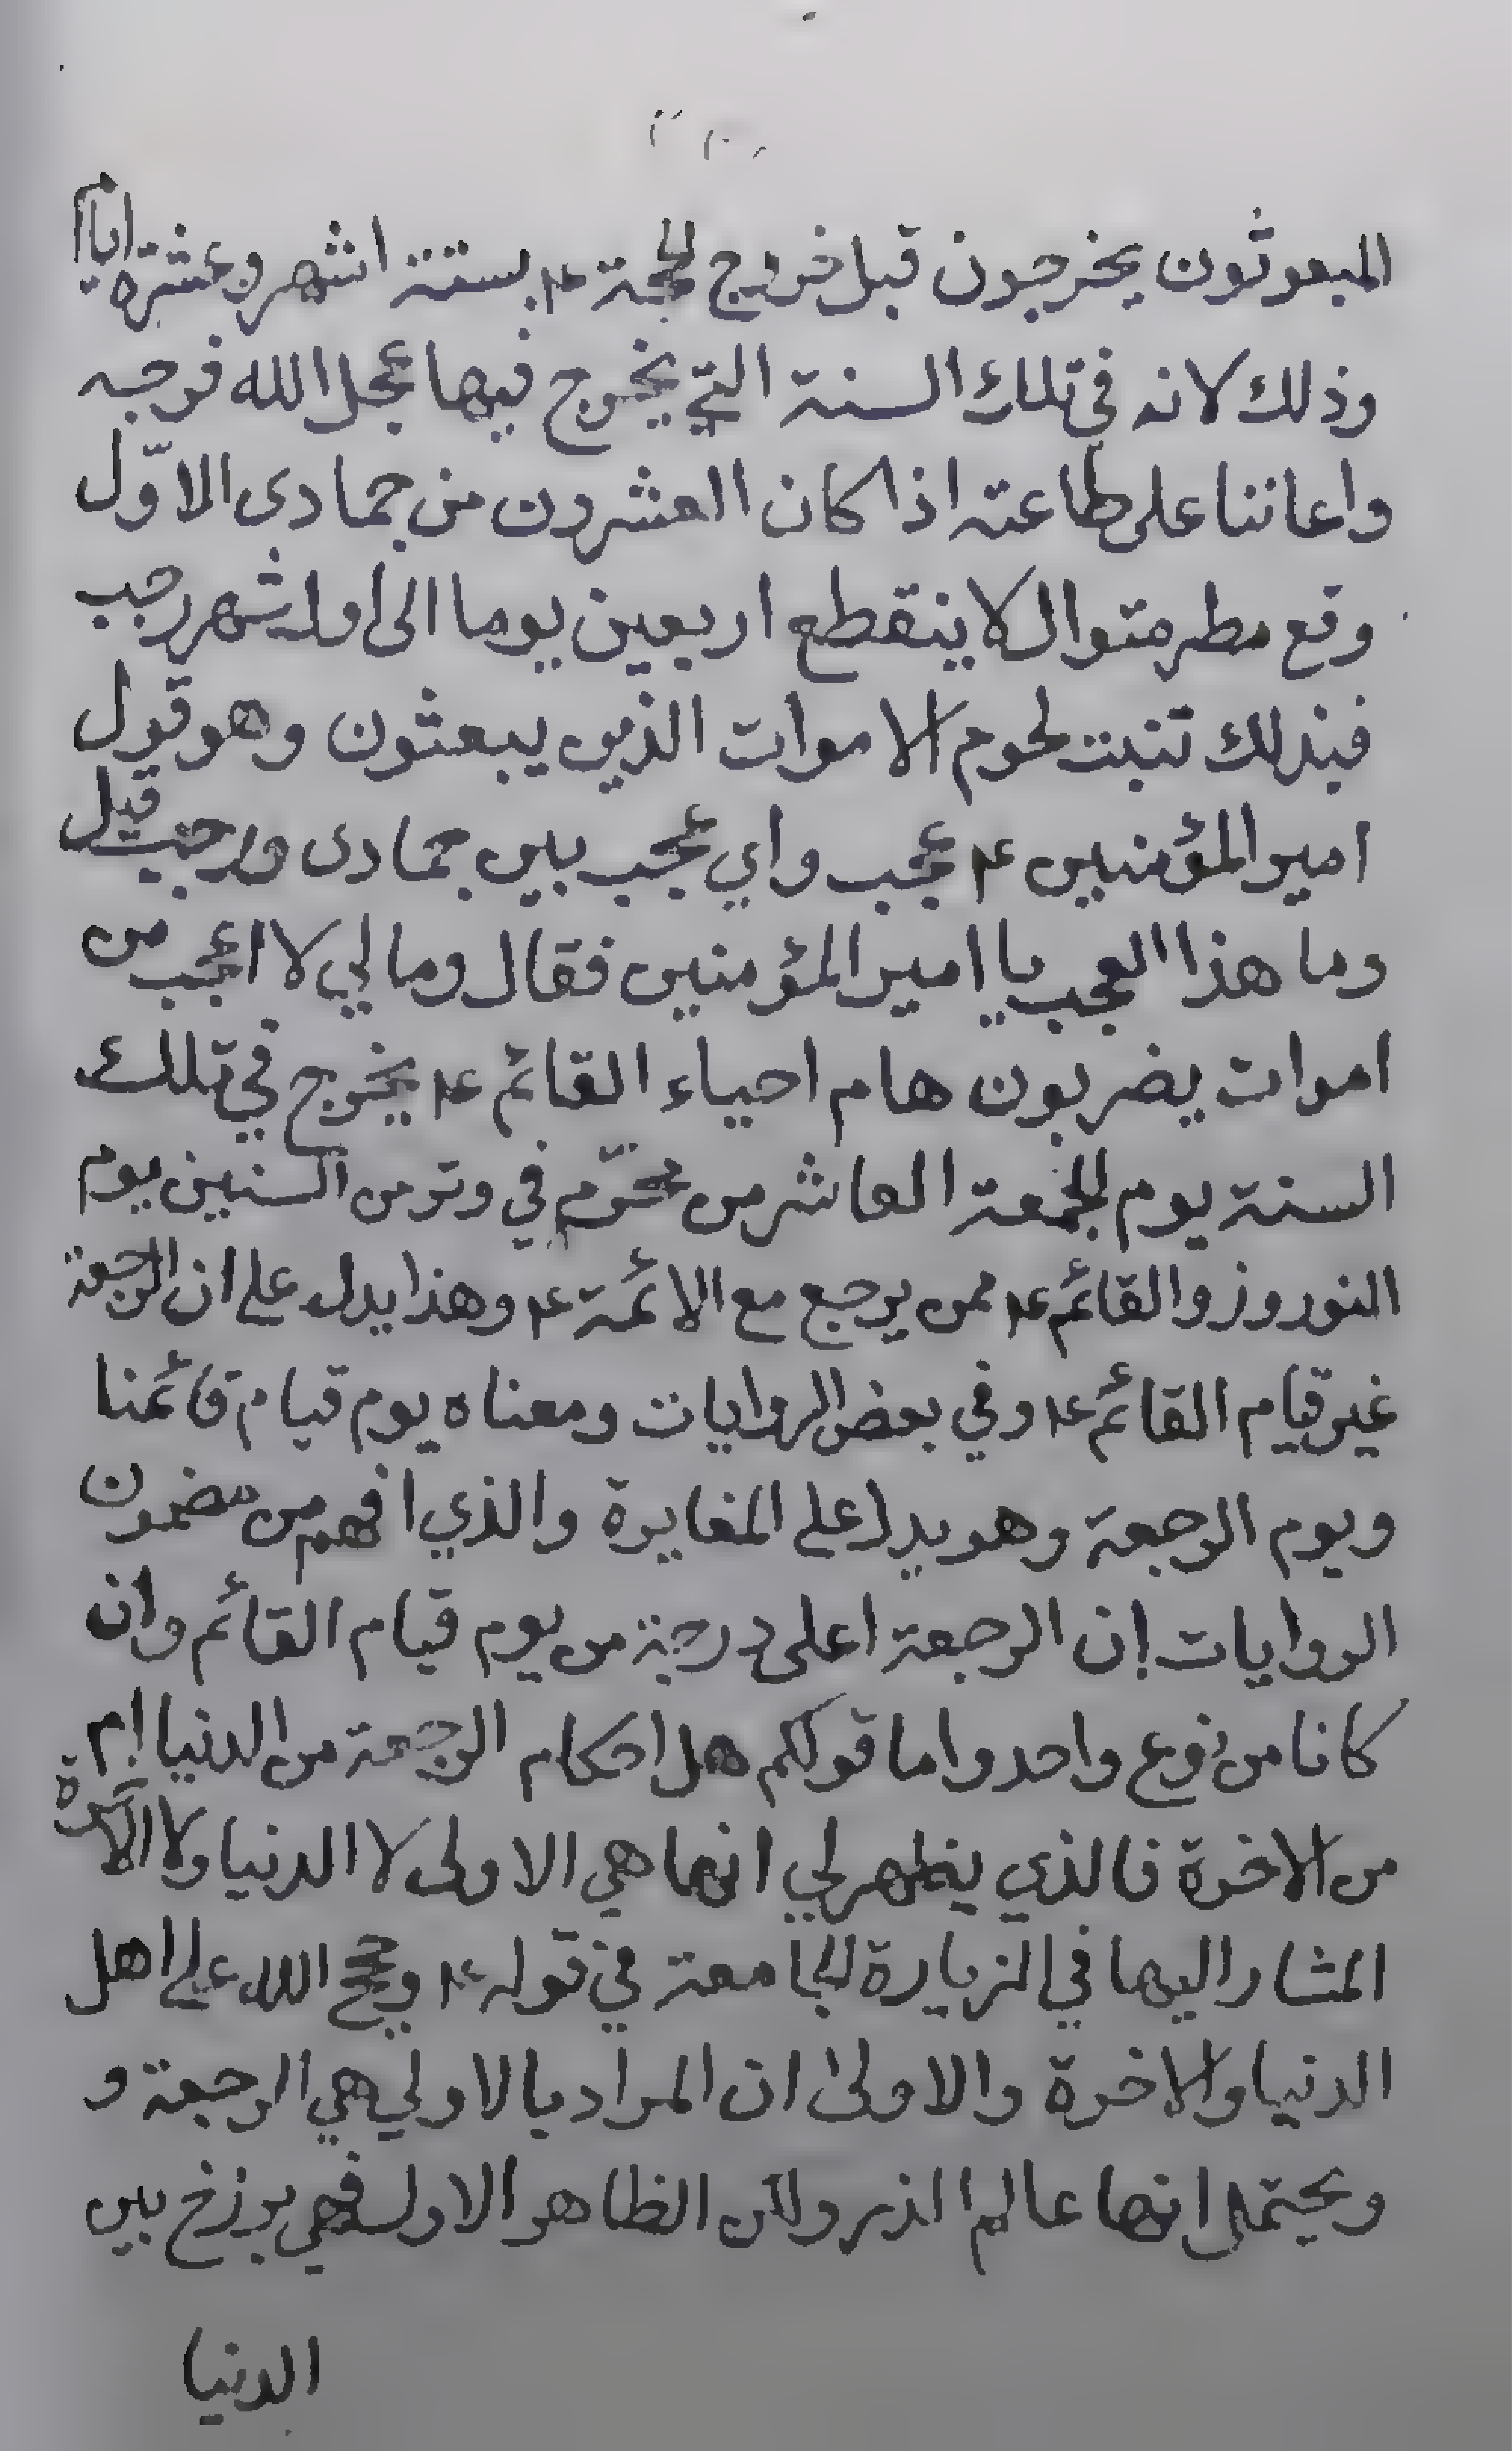 المبعوثون يخرجون قبل خروج الحجة ع بستة اشهر وعشرة ايام
وذلك لانه في تلك السنة التي يخرج فيها عجل الله فرجه
واعاننا على طاعته اذا كان العشرون من جمادى الاوّل
وقع مطر متوال لا ينقطع اربعين يوما الى اول شهر رجب
فبذلك تنبت لحوم الاموات الذين يبعثون وهو قول
امير المؤمنين ع عجب واي عجب بين جمادى ورجب قيل
وما هذا العجب يا امير المؤمنين فقال ومالي لا اعجب من
اموات يضربون هام احياء القائم ع يخرج في تلك
السنة يوم الجمعة العاشر من محرّم في وتر من السنين يوم
النوروز والقائم ع ممن يرجع مع الائمة ع وهذا يدل على ان الرجعة
غير قيام القائم ع وفي بعض الروايات ومعناه يوم قيام قائمنا
ويوم الرجعة وهو يدل على المغايرة والذي افهم من مضمون
الروايات إن الرجعة اعلى درجة من يوم قيام القائم وان
كانا من نوع واحد واما قولكم هل احكام الرجعة من الدنيا ام
من الاخرة فالذي يظهر لي انها هي الاولى لا الدنيا ولا الاخرة
المشار اليها في الزيارة الجامعة في قوله ع وحجج الله على اهل
الدنيا والاخرة والاولى ان المراد بالاولي هي الرجعة و
ويحتمل انها عالم الذر ولكن الظاهر الاول فهي برزخ بين
الدنيا